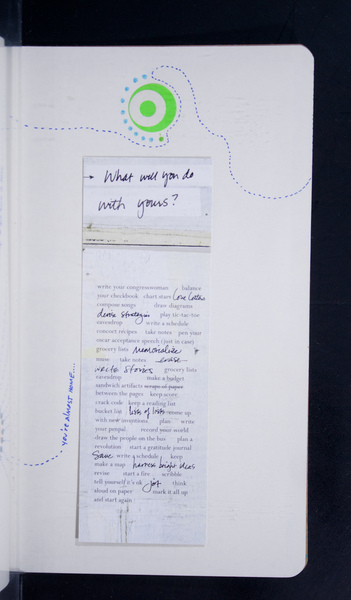 What will you do
with yours?
write your congresswoman balance
your checkbook chart stars Love Letters
compose songs draw diagrams
devise strategies play tic-tac-toe
eavesdrop write a schedule
concoct recipes take notes pen your
oscar acceptance speech (just in case)
grocery lists memorialize
muse take notes erase
write stories grocery lists
eavesdrop make a budget
sandwich artifacts scraps of paper
between the pages keep score
crack code keep a reading list
bucket list lists of lists come up
with new inventions plan write
your penpal record your world
draw the people on the bus plan a
revolution start a gratitude journal
Save write a schedule keep
make a map harvest bright ideas
revise start a fire scribble
tell yourself it's ok jot think
aloud on paper mark it all up
and start again
you're almost home....